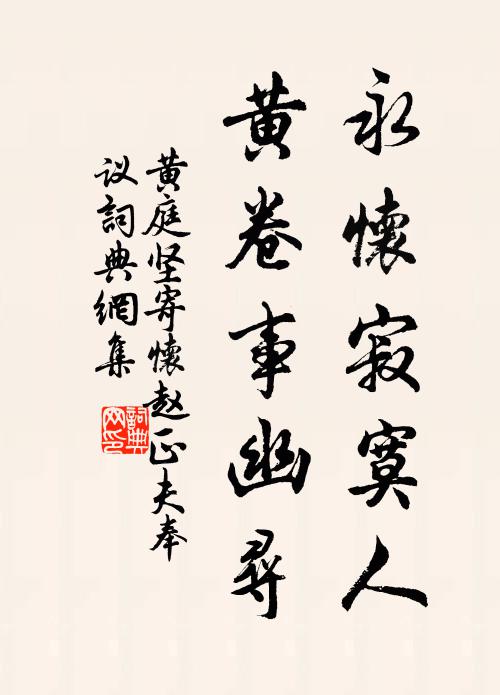 永懷寂寞人
黃卷事幽尋
黃庭坚寄懷赵正夫奉
议詞典網集
詞典
网印